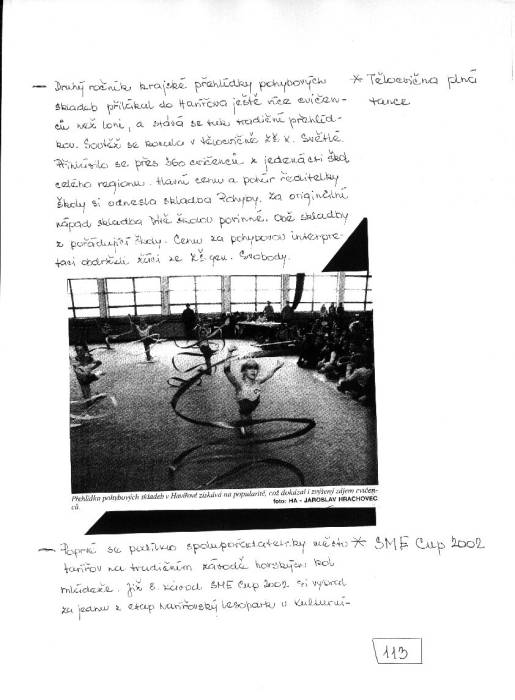 — Druhý ročník krajské přehlídky pohybových
skladeb přilákal do Havířova ještě více cvičen-
ců než loni, a stává se tak tradiční přehlíd-
kou. Soutěž se konala v tělocvičně ZŠ K. Světlé.
Přihlásilo se přes 360 cvičenců z jedenácti škol
celého regionu. Hlavní cenu a pohár ředitelky
školy si odnesla skladba Pohyby. Za originální
nápad skladba Dítě školou povinné. Obě skladby
z pořádající školy. Cenu za pohybovou interpre-
taci obdrželi žáci ze ZŠ gen. Svobody.
* Tělocvična plná
tance
Přehlídka pohybových skladeb v Havířově získává na popularitě, což dokázal i zvýšený zájem cvičen-
ců.
foto: HA - JAROSLAV HRACHOVEC
— Poprvé se podílelo spolupořadatelsky město
Havířov na tradičním závodě horských kol
mládeže. Již 8. závod SME Cup 2002 si vybral
za jednu z etap Havířovský lesopark u Kulturní-
* SME Cup 2002
113